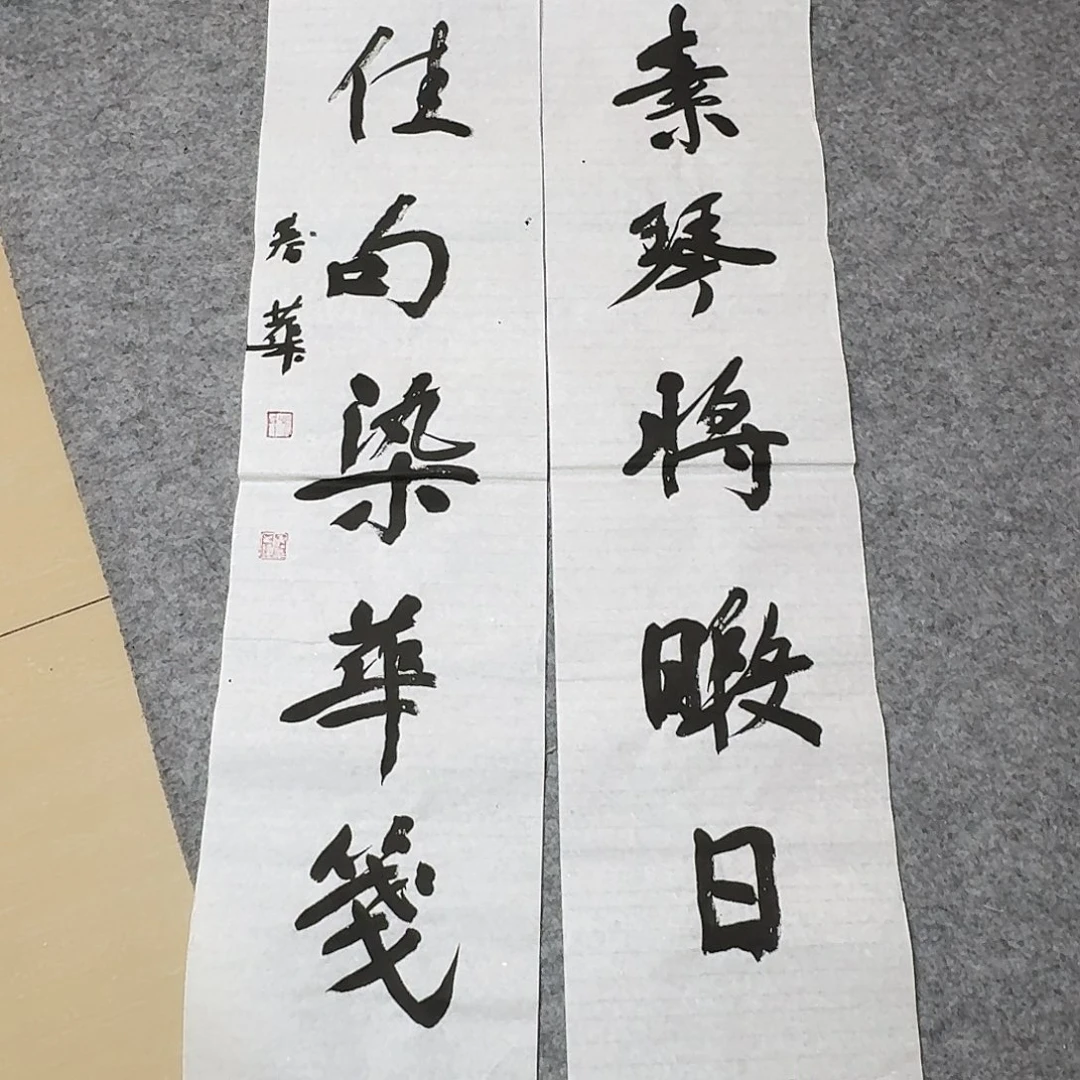 素琴將暇日
佳句染華箋